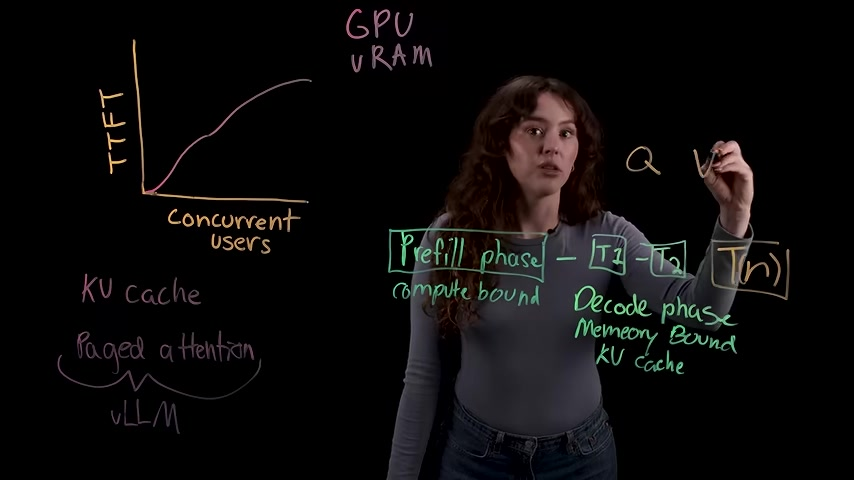 GPU
vRAM
TTFT
concurrent
users
KV cache
Paged attention
vLLM
Q
Prefill phase - T1 - T2 T(n)
compute bound
Decode phase
Memeory Bound
KV cache